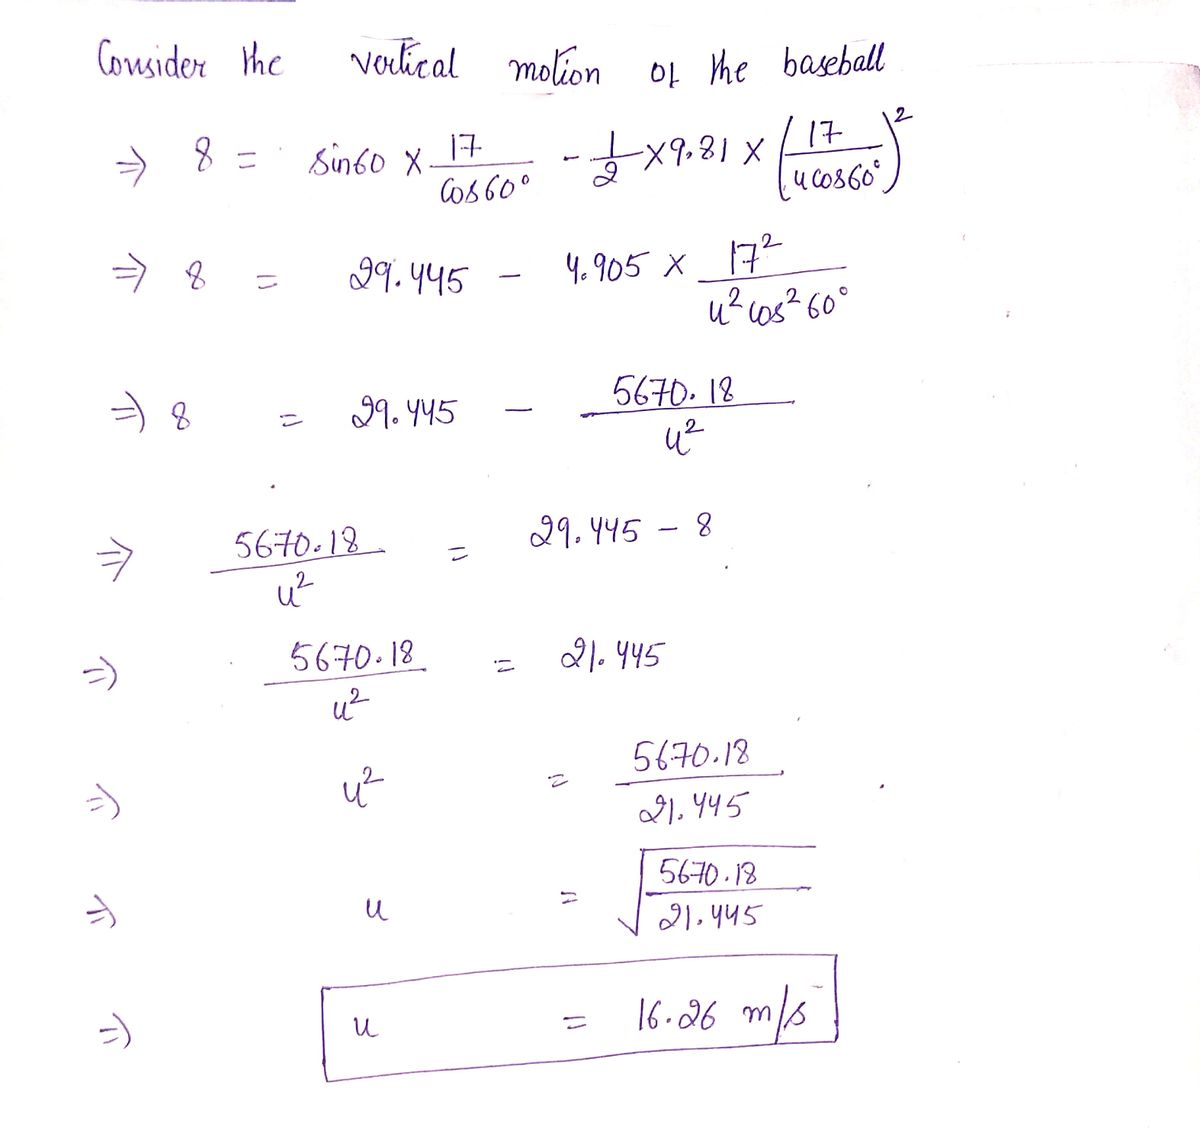 Consider the vertical motion of the baseball
⇒ 8 = sin60 × 17/cos60° - 1/2 × 9.81 × (17/ucos60°)²
⇒ 8 = 29.445 - 4.905 × 17²/u²cos²60°
⇒ 8 = 29.445 - 5670.18/u²
⇒ 5670.18/u² = 29.445 - 8
⇒ 5670.18/u² = 21.445
⇒ u² = 5670.18/21.445
⇒ u = √(5670.18/21.445)
⇒ u = 16.26 m/s